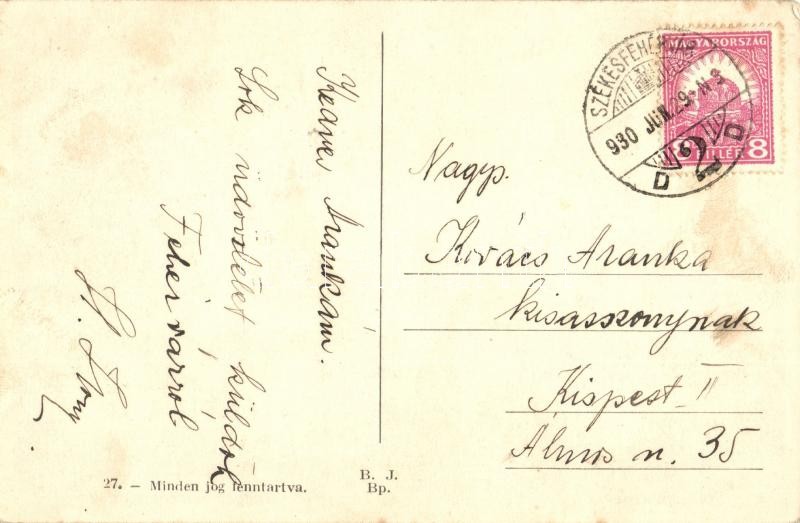 Kedves Arankám.
Sok üdvözletet küldök
Fehérvárról
MAGYARORSZÁG
8 FILLÉR 8
930 JUN.
D 2 D
Nagys.
Kovács Aranka
kisasszonynak
Kispest II
Álmos u. 35
27. – Minden jog fenntartva.
B. J.
Bp.